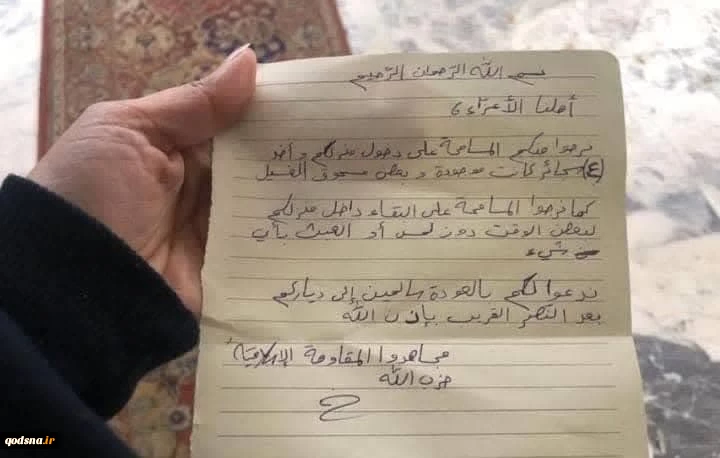 بسم الله الرحمان الرحيم
أهلنا الأعزاء،
نرجوا منكم المسامحة على دخول منزلكم وأخذ
(٤) سجائر كانت موجودة وبعض مسحوق الغسيل
كما نرجوا المسامحة على البقاء داخل منزلكم
لبعض الوقت دون لمس أو العبث بأي
شيء
ندعوا لكم بالعودة سالمين إلى دياركم
بعد النصر القريب بإذن الله
مجاهدوا المقاومة الإسلامية
حزب الله
qodsna.ir